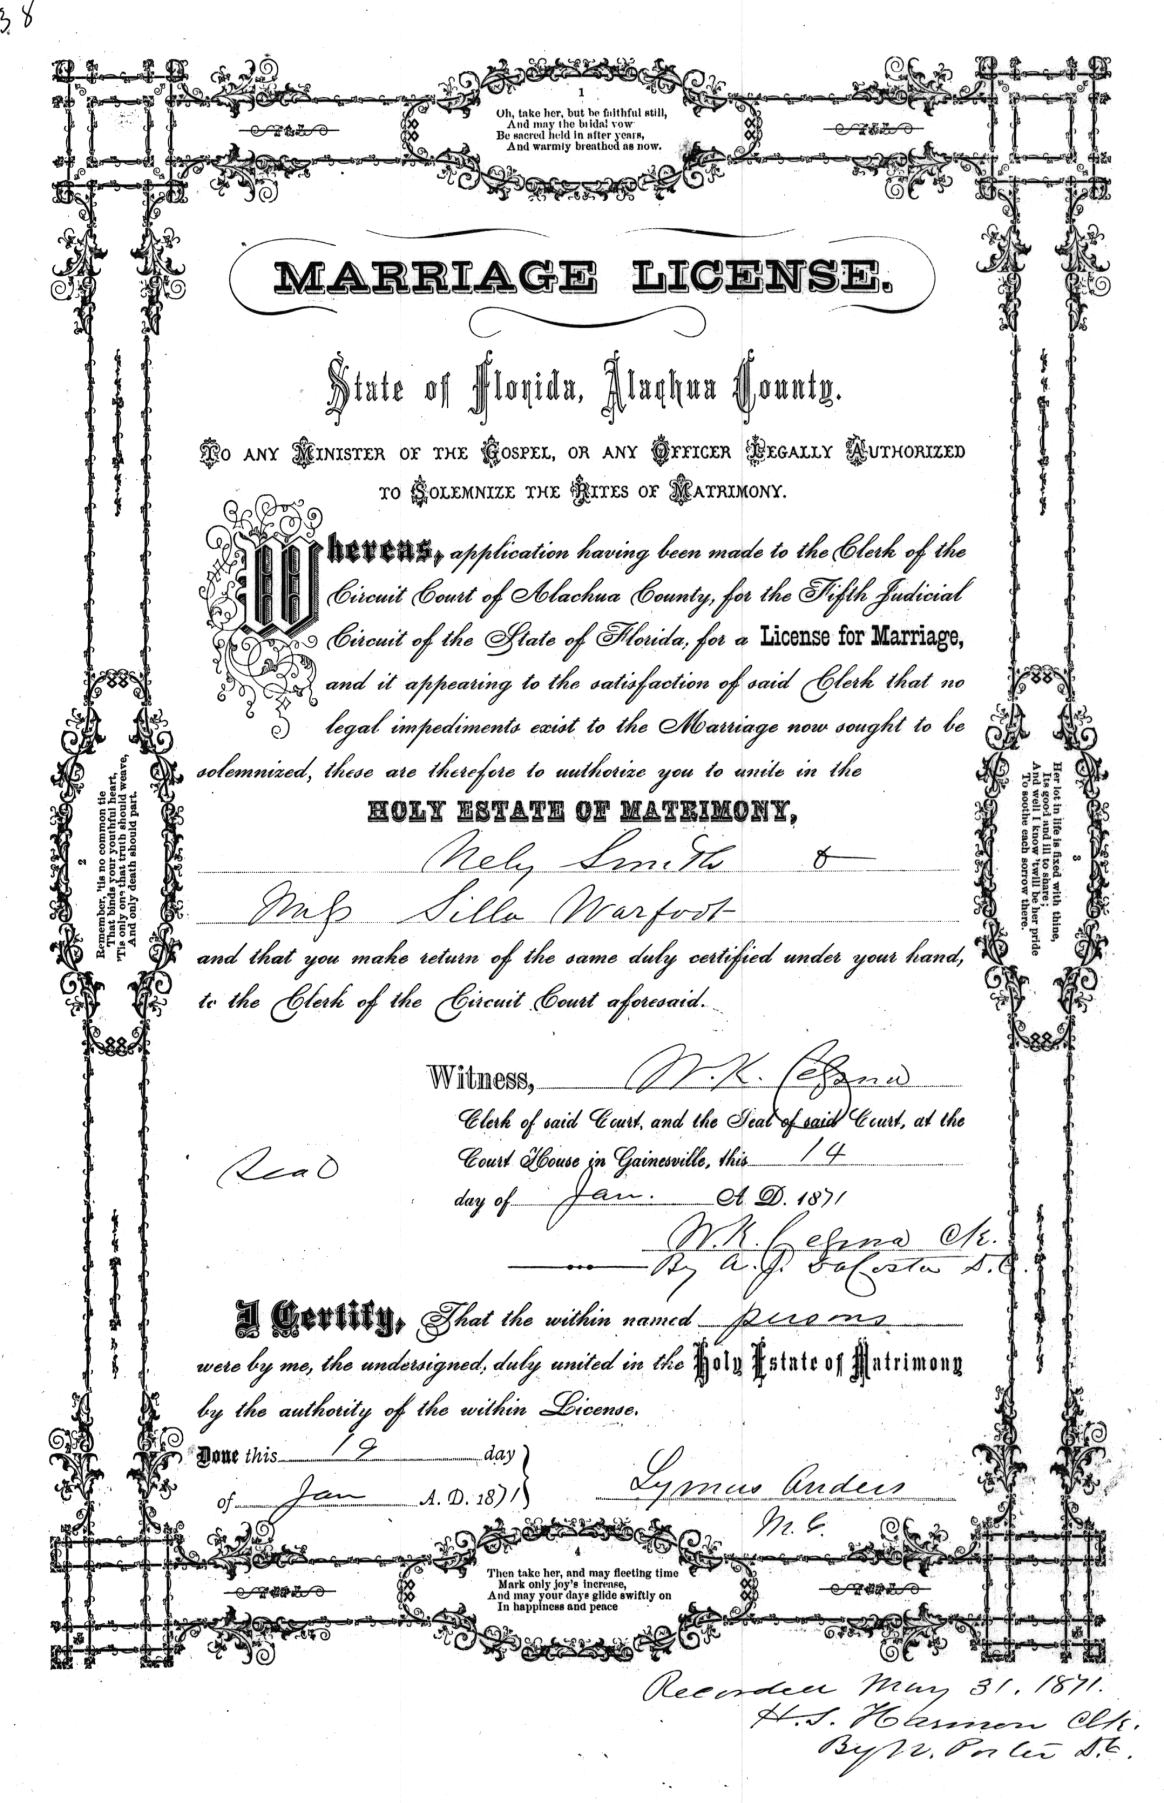 38
1
Oh, take her, but be faithful still,
And may the bridal vow
Be sacred held in after years,
And warmly breathed as now.
MARRIAGE LICENSE.
State of Florida, Alachua County.
To any Minister of the Gospel, or any Officer Legally Authorized
to Solemnize the Rites of Matrimony.
Whereas, application having been made to the Clerk of the
Circuit Court of Alachua County, for the Fifth Judicial
Circuit of the State of Florida, for a License for Marriage,
and it appearing to the satisfaction of said Clerk that no
legal impediments exist to the Marriage now sought to be
solemnized, these are therefore to authorize you to unite in the
HOLY ESTATE OF MATRIMONY,
Nely Smith &
Miss Silla Warfoot
and that you make return of the same duly certified under your hand,
to the Clerk of the Circuit Court aforesaid.
2
Remember, 'tis no common tie
That binds your youthful heart,
'Tis only one that truth should weave,
And only death should part.
3
Her lot in life is fixed with thine,
Its good and ill to share;
And well I know 'twill be her pride
To soothe each sorrow there.
Witness, W. K. Cessna
Clerk of said Court, and the Seal of said Court, at the
Court House in Gainesville, this 14
Seal
day of Jan. A. D. 1871
W. K. Cessna Clk.
By A. J. DaCosta D. C.
I Certify, That the within named persons
were by me, the undersigned, duly united in the Holy Estate of Matrimony
by the authority of the within License.
Done this 19 day
of Jan A. D. 1871
Lymus Anders
M. G.
4
Then take her, and may fleeting time
Mark only joy's increase,
And may your days glide swiftly on
In happiness and peace
Recorded May 31. 1871.
H. S. Harmon Clk.
By N. Porter D. C.